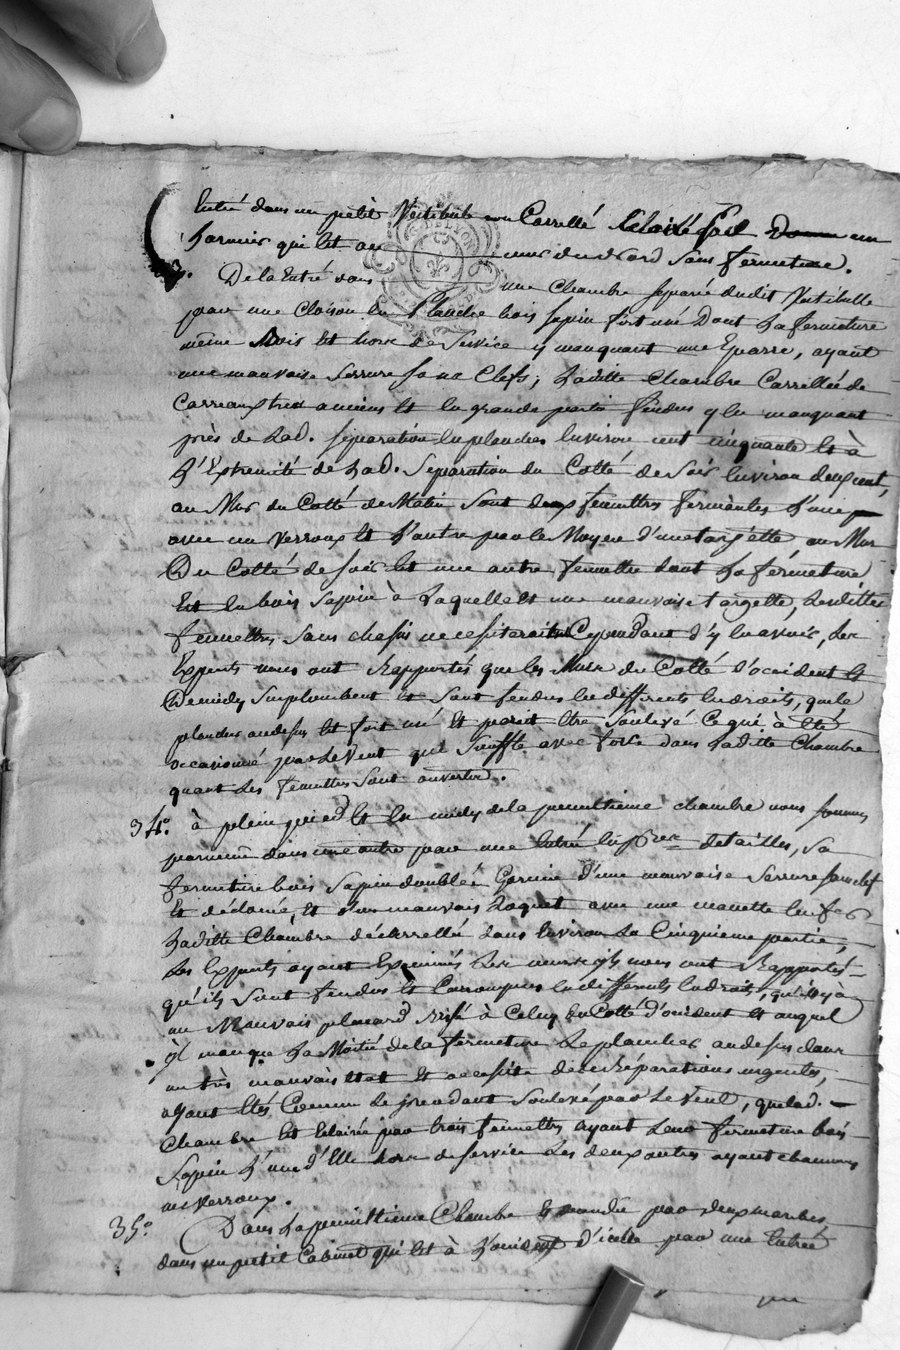 Entré dans un petit Vestibule non Carrellé Eclairé par un
larmier qui est au mur du nord sans fermeture.
DELYON
33.
De la Entré dans une Chambre separée dudit Vestibulle
par une Cloison en Planche bois sapin fort usé Dont La fermeture
même Bois Et hors de Service y manquant une Eparre, ayant
une mauvaise Serrure sans Clefs; Ladite Chambre Carrellée de
Carreaux très anciens Et en grande partie fendus y en manquant
près de Lad. séparation en planches Environ cent cinquante Et à
L'Extremité de Lad. Separation du Cotté de Soir Environ deux cent,
au Mur du Cotté de Matin Sont deux fenettres fermentes L'une
avec un verroux Et L'autre par le Moyen d'une targette au Mur
Du Cotté de soir Est une autre fenettre dont La férmeture
Est En bois Sapin à Laquelle Est une mauvaise targette, Lesdittes
fenettres Sans chasis necessiteroit Cependant d'y En avoir, Les
Experts nous ont Rapportés que les Murs du Cotté d'occident Et
De midy Surplombent Et Sont fendus En differents Endroits, que le
plancher audessus Est fort usé Et paroit Etre Soulevé Ce qui à Eté
occasionné par Le Vent qui Souffle avec force dans Laditte Chambre
quand Les fenettres Sont ouvertes.
34.° à plein pied Et En midy de la penultieme chambre nous sommes
parvenu dans une autre par une Entrée detailles, Sa
fermeture bois Sapin doublée Garnie d'une mauvaise Serrure sans clef
Et déclouée, Et d'un mauvais Loquet avec une manette En fer
Laditte Chambre décarrellée dans Environ La Cinquieme partie,
Les Experts ayant Examinés Les murs ils nous ont Rapportés
qu'ils Sont fendus Et Corrompus En differents Endroits, qu'il y à
un Mauvais placard à Celuy du Cotté d'occident Et auquel
il manque La Moitié de la fermeture Le plancher audessus dans
un très mauvais Etat Et necessite des Réparations urgentes,
ayant Etés Comme Le precedant Soulevé par Le Vent, que Lad.
Chambre Est Eclairée par trois fenettres ayant Leur fermeture bois
Sapin L'une d'Elle hors de service Les deux autres ayant chacunes
un Verroux.
35.° Dans La penulttieme Chambre par deux marches
dans un petit Cabinet qui Est à L'occident d'icelle par une Entrée